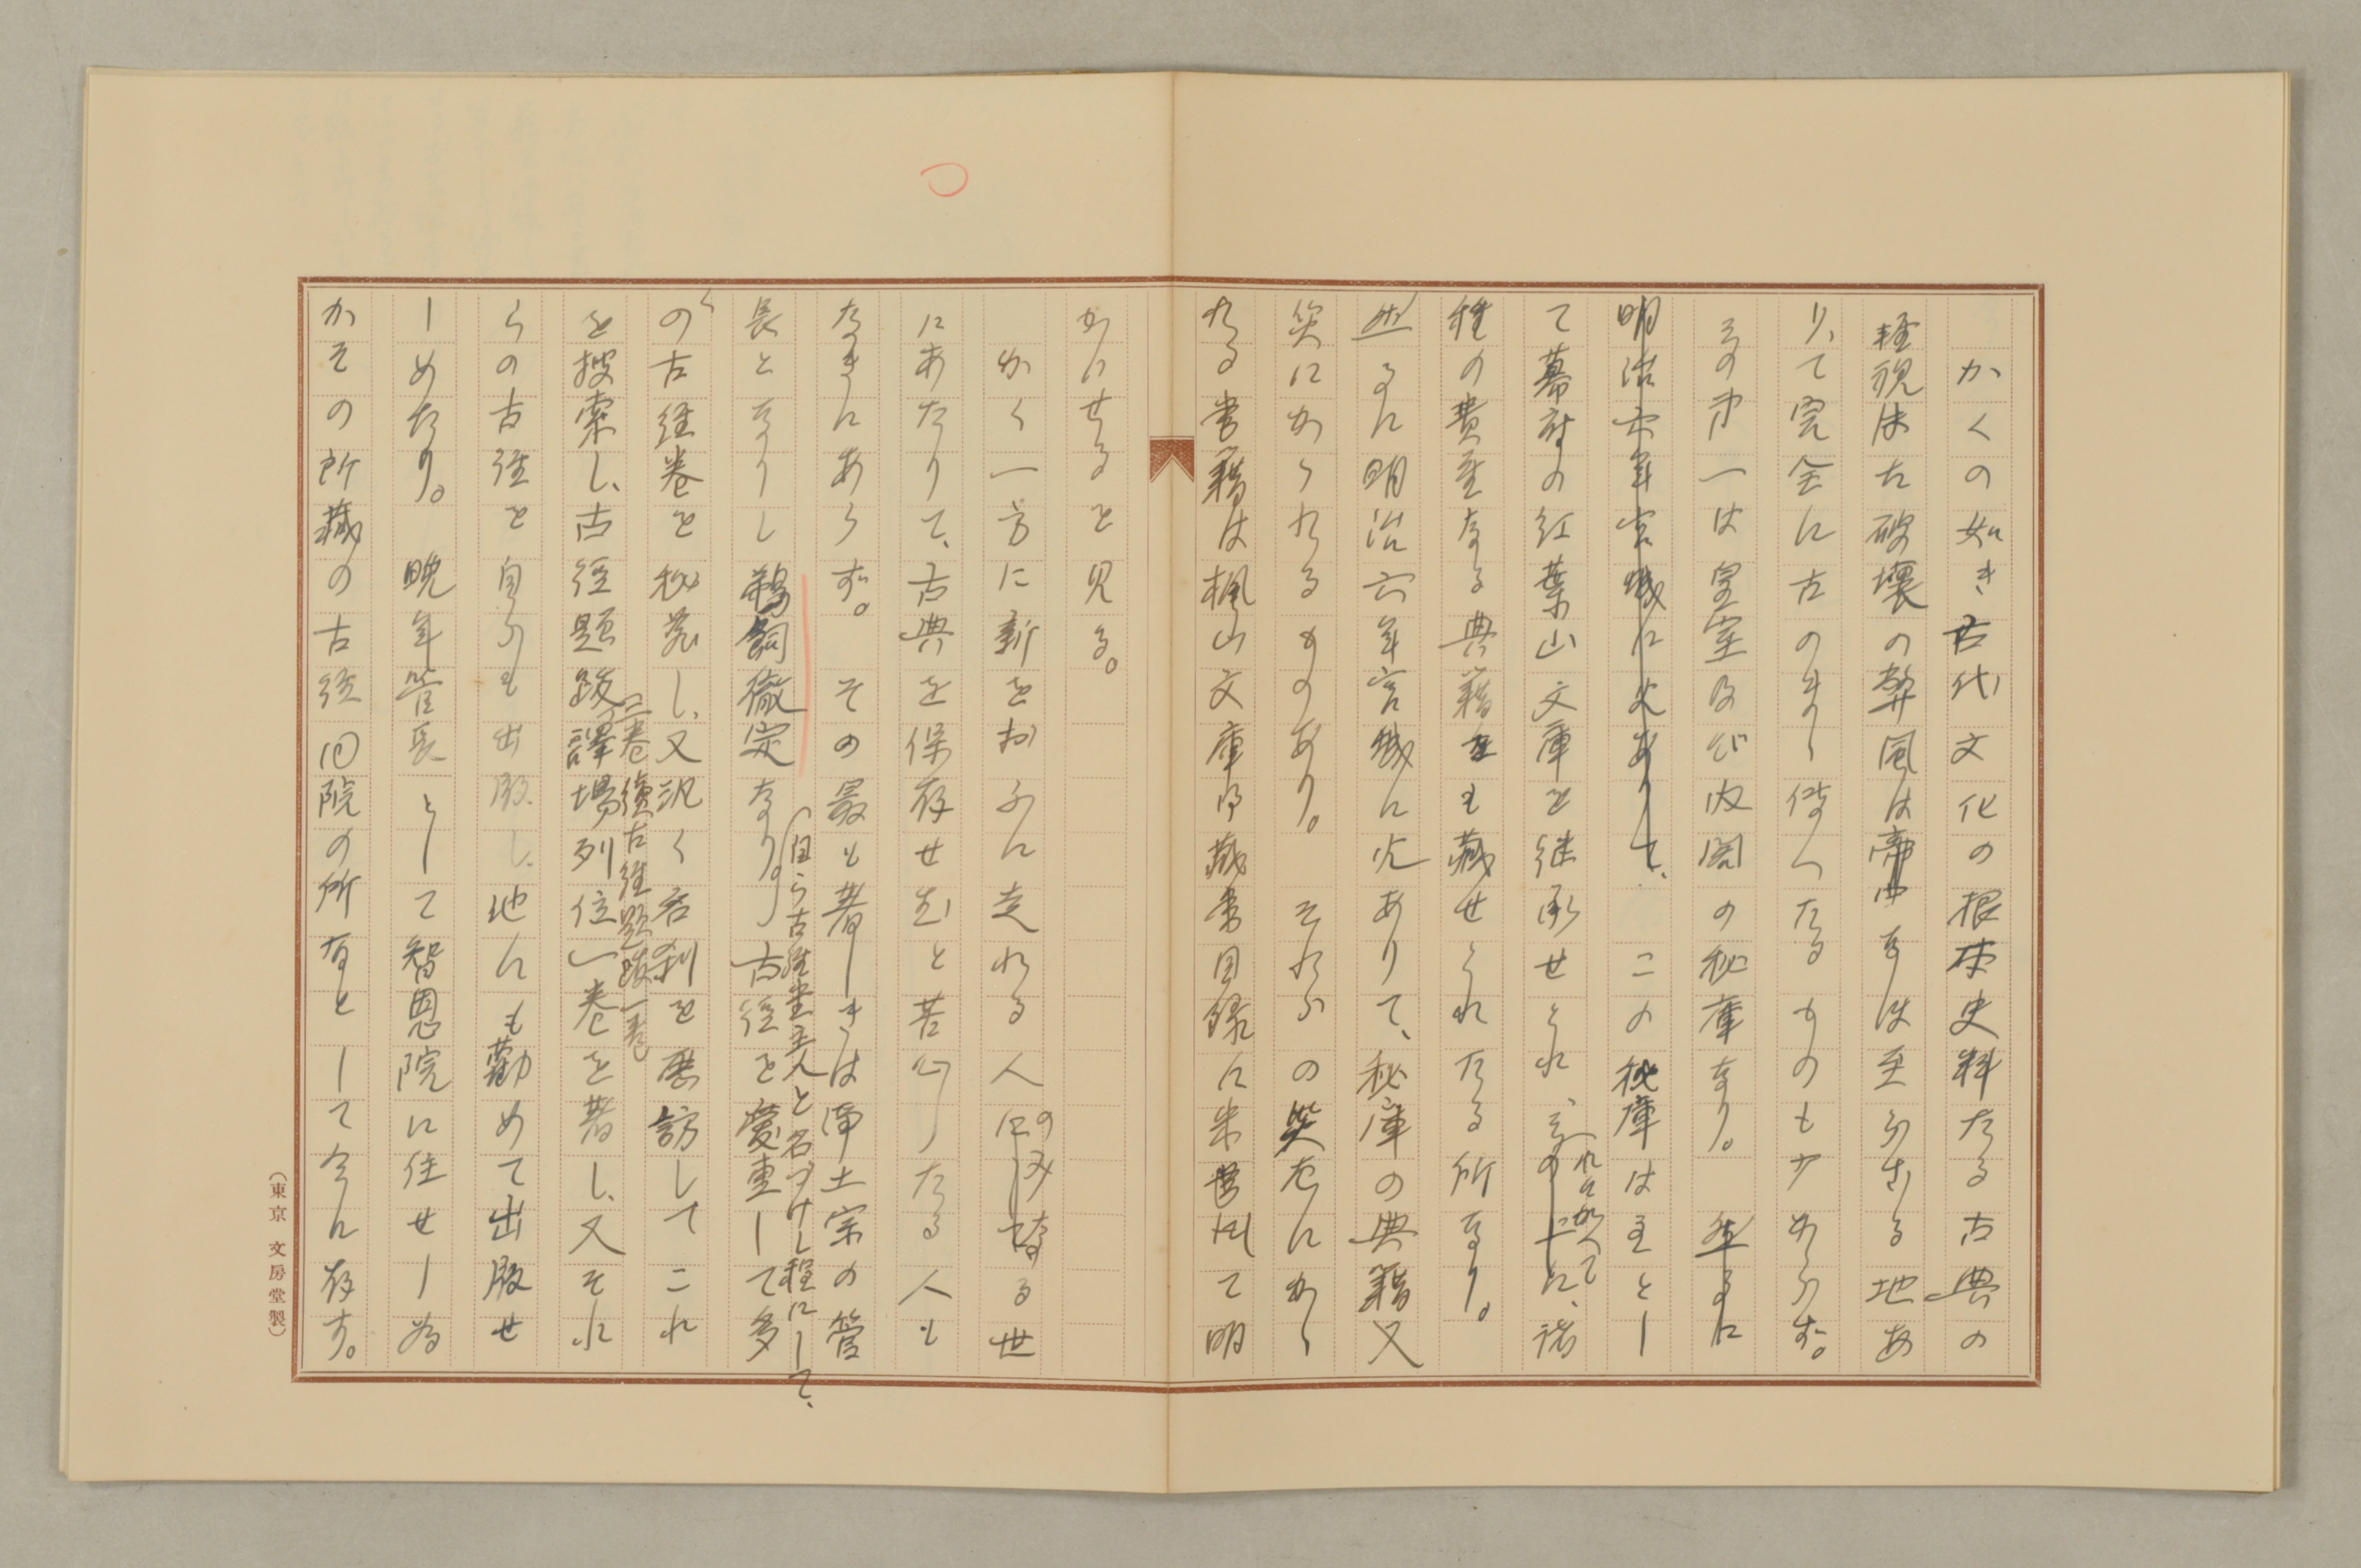 かくの如き古代文化の根本史料たる古典の
軽視また破壊の弊風は帝室には至らざる地あ
りて完全に古のまゝ伝へたるものも少からず。
その第一は皇室及び内閣の秘庫なり。然るに
明治六年宮城に火ありて、この秘庫は主とし
て幕府の紅葉山文庫を継承せられ、その上に、諸
これに加へて
種の貴重なる典籍をも蔵せられたる所なり。
然るに明治六年宮城に火ありて、秘庫の典籍又
災にかゝれるものあり。それらの災厄にかゝ
れる書籍は楓山文庫御蔵書目録に朱書して明
かにせるを見る。
かく一方に新をおふに走れる人にし誇る世
のみ
にあたりて、古典を保存せむと苦心したる人も
なきにあらず。その最も著しきは浄土宗の管
長となりし鵜飼徹定なり。古経を愛重して多
(自ら古経堂主人と名づけし程にして、
くの古経巻を秘蔵し、又汎く古刹を歴訪してこれ
を捜索し、古経題跋
二巻続古経題跋一巻
訳場列位一巻を著し、又それ
らの古経を自らも出版し、他にも勸めて出版せ
しめたり。晩年管長として智恩院に住せし為
かその所蔵の古経同院の所有として今に存す。
(東京 文房堂製)